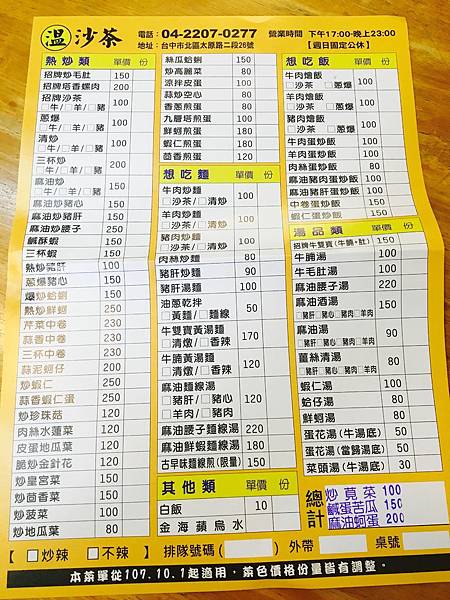 溫 沙茶
電話：04-2207-0277 營業時間 下午17:00-晚上23:00
地址：台中市北區太原路二段26號 【週日固定公休】
熱炒類 單價 份
招牌炒毛肚 150
招牌塔香螺肉 200
招牌沙茶 □牛/□羊/□豬 100
蔥爆 □牛/□羊/□豬 100
三杯炒 □牛/□羊 200
麻油炒 □牛/□羊/□豬 150
麻油炒豬心 150
麻油炒豬肝 150
麻油腰子 250
鹹酥蝦 150
三杯蝦 150
熱炒豬肝 100
蔥爆豬心 100
爆炒蛤蜊 150
熱炒鮮蚵 250
芹菜中卷 250
蒜香中卷 250
三杯中卷 250
蒜泥蚵仔 200
炒蝦仁 250
蒜香蝦仁蛋 250
炒珍珠菇 100
肉絲水蓮菜 120
皮蛋地瓜葉 120
脆炒金針花 120
炒皇宮菜 150
炒茴香菜 150
炒菠菜 100
炒地瓜葉 80
絲瓜蛤蜊 150
炒高麗菜 80
涼拌皮蛋 100
蒜炒空心 80
香蔥煎蛋 80
九層塔煎蛋 100
鮮蚵煎蛋 200
蝦仁煎蛋 200
茴香煎蛋 120
想吃麵 單價 份
牛肉炒麵 □沙茶/□清炒 100
羊肉炒麵 □沙茶/□清炒 100
豬肉炒麵 □沙茶/□清炒 100
肉絲炒麵 80
豬肝炒麵 90
豬肝湯麵 100
油蔥乾拌 □黃麵/□麵線 50
牛雙寶黃湯麵 □清燉/□香辣 170
牛腩黃湯麵 □清燉/□香辣 120
麻油麵線湯 □豬肝/□豬心 □羊肉/□豬肉 120
麻油腰子麵線湯 220
麻油鮮蝦麵線湯 180
古早味麵線煎(限量) 150
其他類 單價 份
白飯 10
金海蘋烏水
想吃飯 單價 份
牛肉燴飯 □沙茶 □蔥爆 100
羊肉燴飯 □沙茶 □蔥爆 100
豬肉燴飯 □沙茶 □蔥爆 100
牛肉蛋炒飯 100
羊肉蛋炒飯 100
肉絲蛋炒飯 80
麻油豬肉蛋炒飯 100
麻油豬肝蛋炒飯 100
中卷蛋炒飯 150
蝦仁蛋炒飯 150
湯品類 單價 份
招牌牛雙寶(牛腩·肚) 150
牛腩湯 100
牛毛肚湯 100
麻油腰子湯 220
麻油酒湯 □豬肝□豬心□豬肉□羊肉 150
麻油湯 □豬肝□豬心□豬肉□羊肉 90
薑絲清湯 □豬肝□豬心□豬肉 80
蝦仁湯 100
蛤仔湯 80
鮮蚵湯 80
蛋花湯(牛湯底) 50
蛋花湯(當歸湯底) 50
菜頭湯(牛湯底) 30
總計
炒莧菜 100
鹹蛋苦瓜 150
麻油蚵蛋 200
【 □炒辣 □不辣 】 排隊號碼( ) 外帶 桌號
本菜單從107.10.1起適用，菜色價格份量皆有調整。